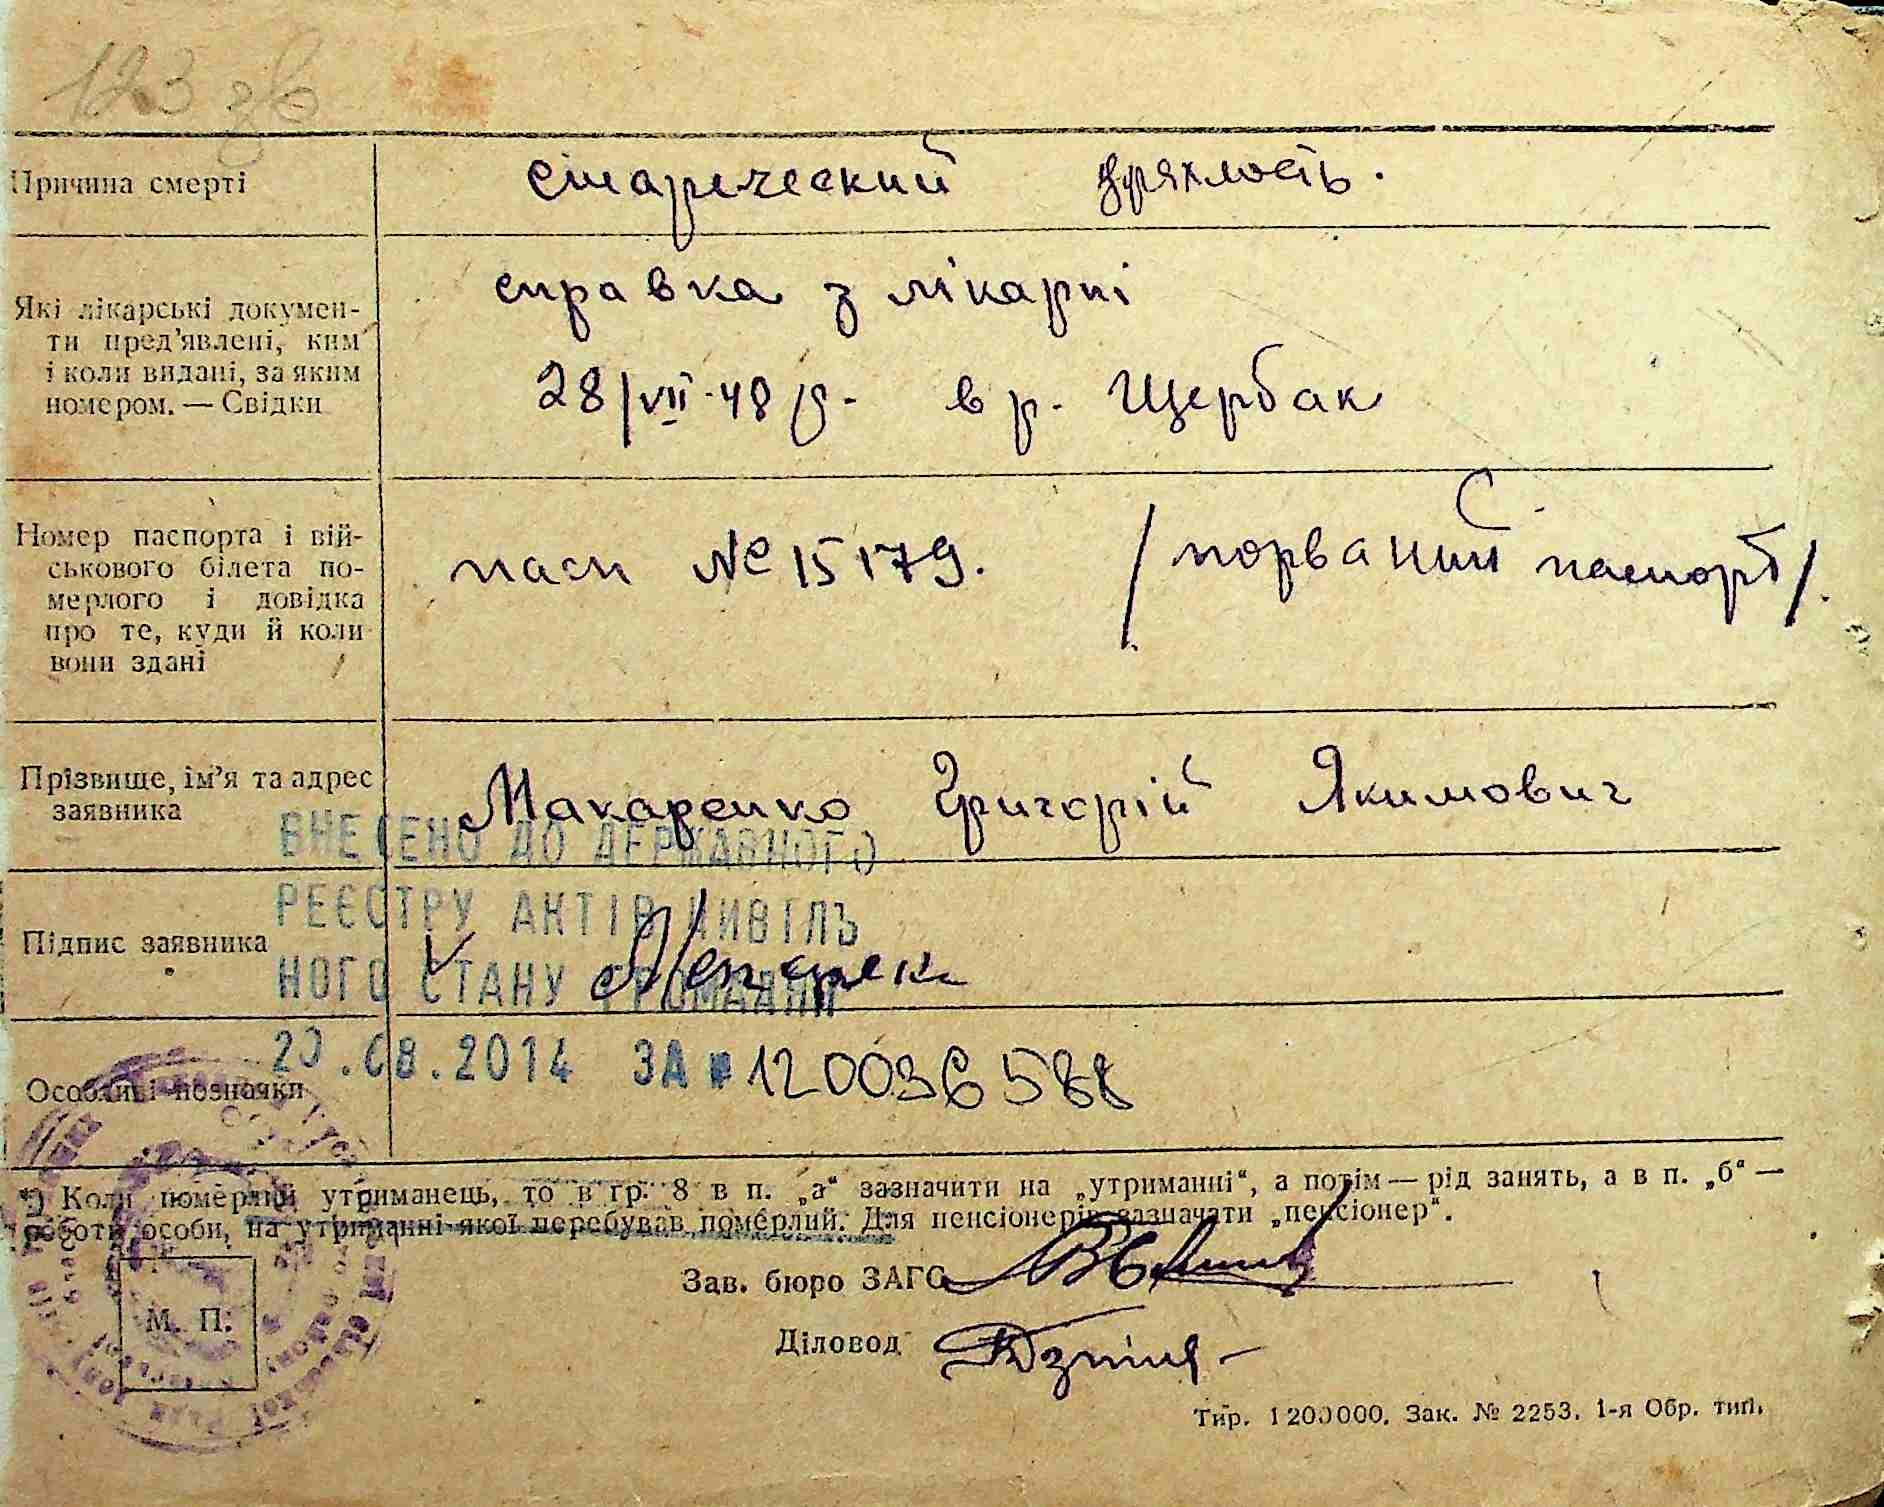 123 зв
Причина смерті
старческий дряхлость.
Які лікарські докумен-
ти пред'явлені, ким
і коли видані, за яким
номером. — Свідки
справка з лікарні
28/VII-48 р. вр. Щербак
Номер паспорта і вій-
ськового білета по-
мерлого і довідка
про те, куди й коли
вони здані
пасп № 15179. /порваний паспорт/.
Прізвище, ім'я та адрес
заявника
Макаренко Григорій Якимович
ВНЕСЕНО ДО ДЕРЖАВНОГО
РЕЄСТРУ АКТІВ ЦИВІЛЬ
НОГО СТАНУ ГРОМАДЯН
Підпис заявника
20.08.2014 ЗА № 120036588
Особливі позначки
*) Коли померлий утриманець, то в гр. 8 в п. „а“ зазначити на „утриманні“, а потім — рід занять, а в п. „б“ —
роботи особи, на утриманні якої перебував померлий. Для пенсіонерів зазначати „пенсіонер“.
Зав. бюро ЗАГС
М. П.
Діловод
Тир. 1200000. Зак. № 2253. 1-я Обр. тип.